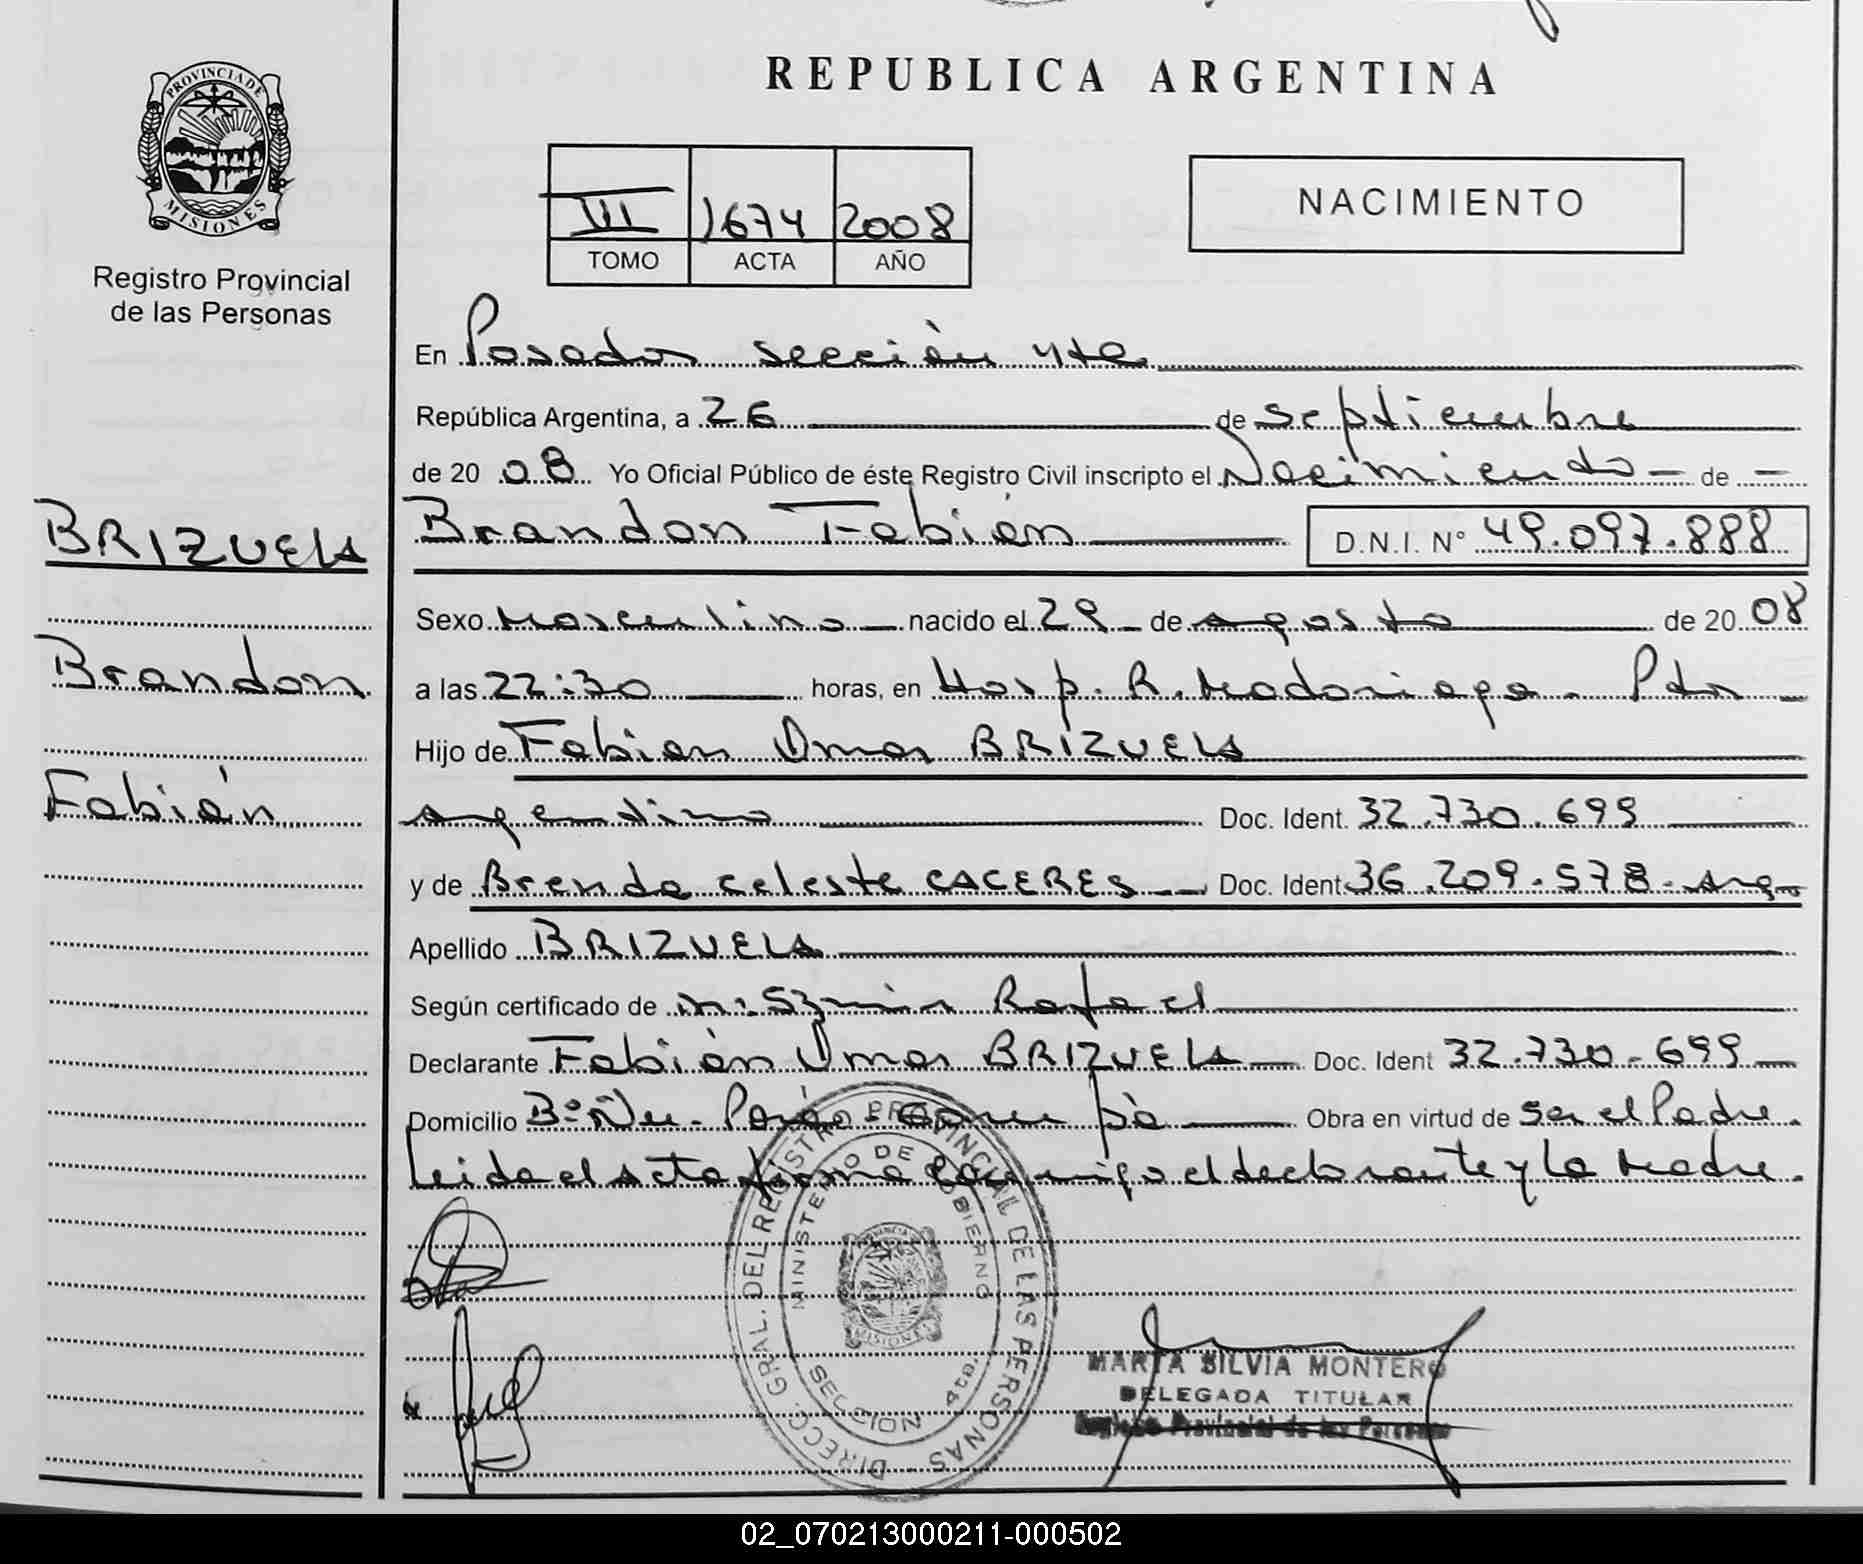 REPUBLICA ARGENTINA
PROVINCIA DE
MISIONES
Registro Provincial
de las Personas
III 1674 2008
TOMO ACTA AÑO
NACIMIENTO
En Posadas sección 4ta
República Argentina, a 26 de septiembre
de 20 08 Yo Oficial Público de éste Registro Civil inscripto el Nacimiento - de -
BRIZUELA
Brandon
Fabián
Brandon Fabián D.N.I. N° 49.097.888
Sexo Masculino nacido el 29 de agosto de 20 08
a las 22:30 horas, en Hosp. R. Madariaga. Pdas
Hijo de Fabian Omar BRIZUELA
argentino Doc. Ident. 32.730.699
y de Brenda Celeste CACERES Doc. Ident. 36.209.578.
Apellido BRIZUELA
Según certificado de Rafael
Declarante Fabián Omar BRIZUELA Doc. Ident 32.730.699
Domicilio B° Ñu - Porá - Garupá Obra en virtud de ser el Padre.
Leida el acta firma conmigo el declarante y la Madre.
DIRECC. GRAL. DEL REGISTRO PROVINCIAL DE LAS PERSONAS
MINISTERIO DE GOBIERNO
SECCION 4ta.
MISIONES
MARTA SILVIA MONTERO
DELEGADA TITULAR
Registro Provincial de las Personas
02_070213000211-000502